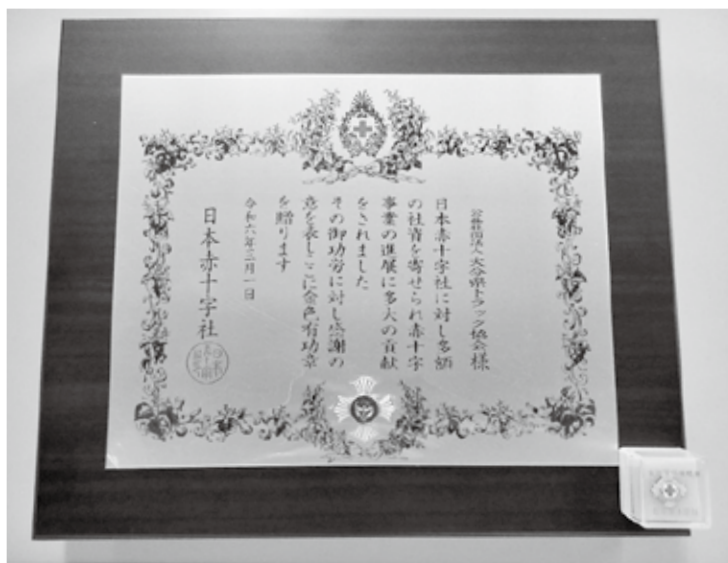 公益社団法人大分県トラック協会様
日本赤十字社に対し多額
の社資を寄せられ赤十字
事業の進展に多大の貢献
をされました
その御功労に対し感謝の
意を表しここに金色有功章
を贈ります
令和六年三月一日
日本赤十字社